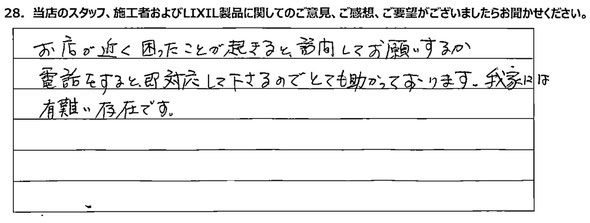 28. 当店のスタッフ、施工者およびLIXIL製品に関してのご意見、ご感想、ご要望がございましたらお聞かせください。
お店が近く困ったことが起きると、訪問してお願いするか
電話をすると、即対応して下さるのでとても助かっております。我家には
有難い存在です。